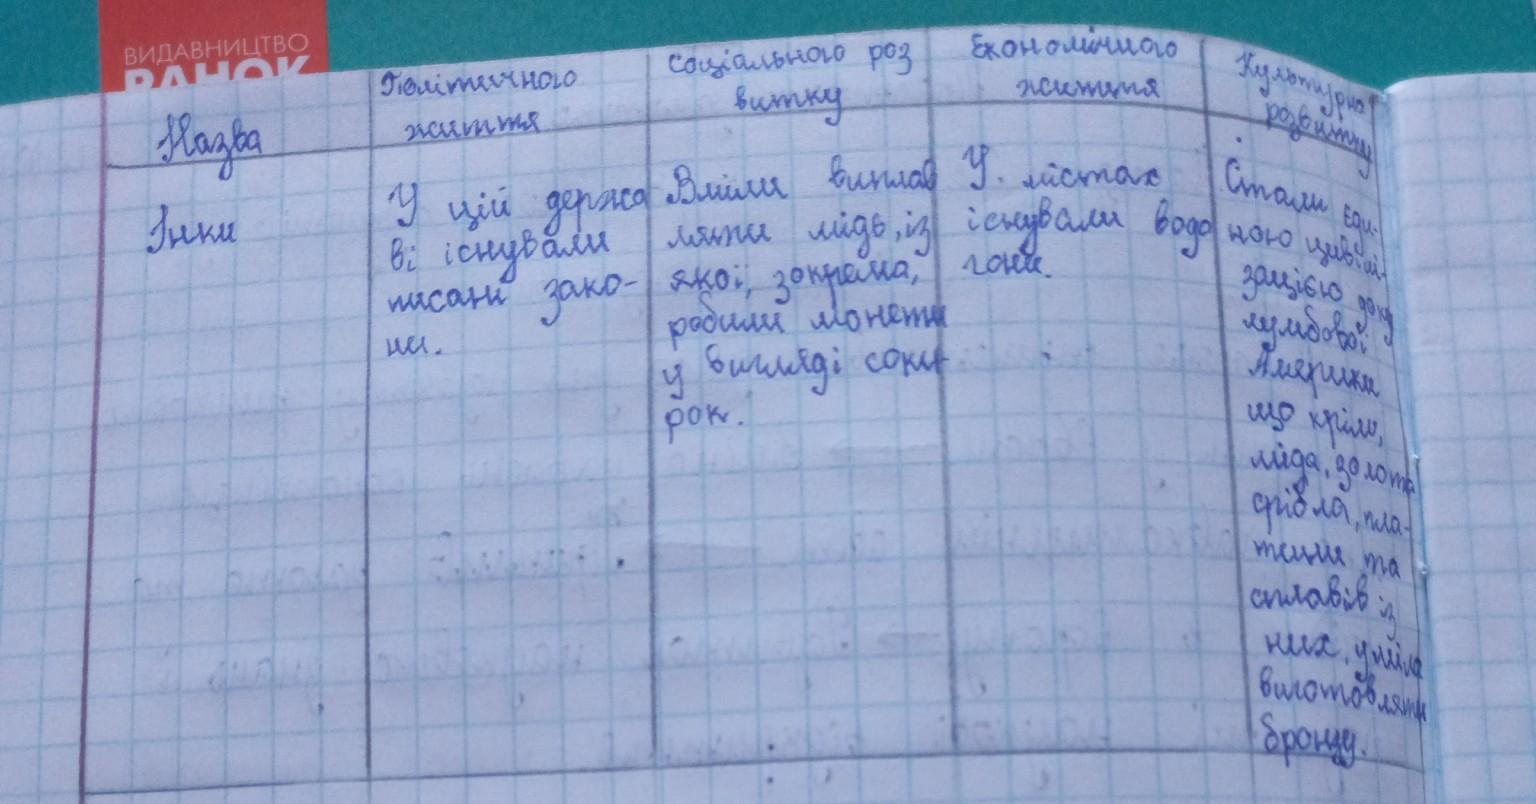 ВИДАВНИЦТВО
РАНОК
Назва
Політичного
життя
Соціального роз
витку
Економічного
життя
Культурно
розвитку
Інки
У цій держа
ві існували
писані зако-
ни.
Вміли виплав
ляти мідь, із
якої, зокрема,
робили монети
у вигляді соки-
рок.
У містах
існували водо
гони.
Стали єди-
ною цивілі-
зацією доко
лумбової
Америки
що крім,
міда, золота
срібла, пла-
тини та
сплавів із
них, уміла
виготовляти
бронзу.